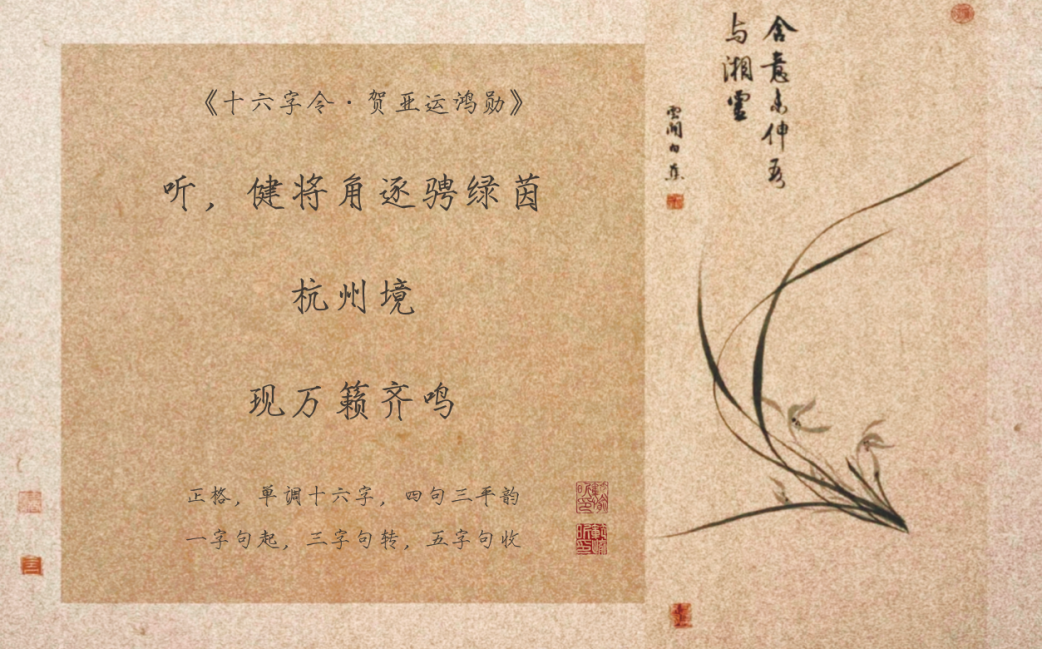 《十六字令·贺亚运鸿勋》
听，健将角逐骋绿茵
杭州境
现万籁齐鸣
正格，单调十六字，四句三平韵
一字句起，三字句转，五字句收
含意未伸
与湘云
云间白蕉